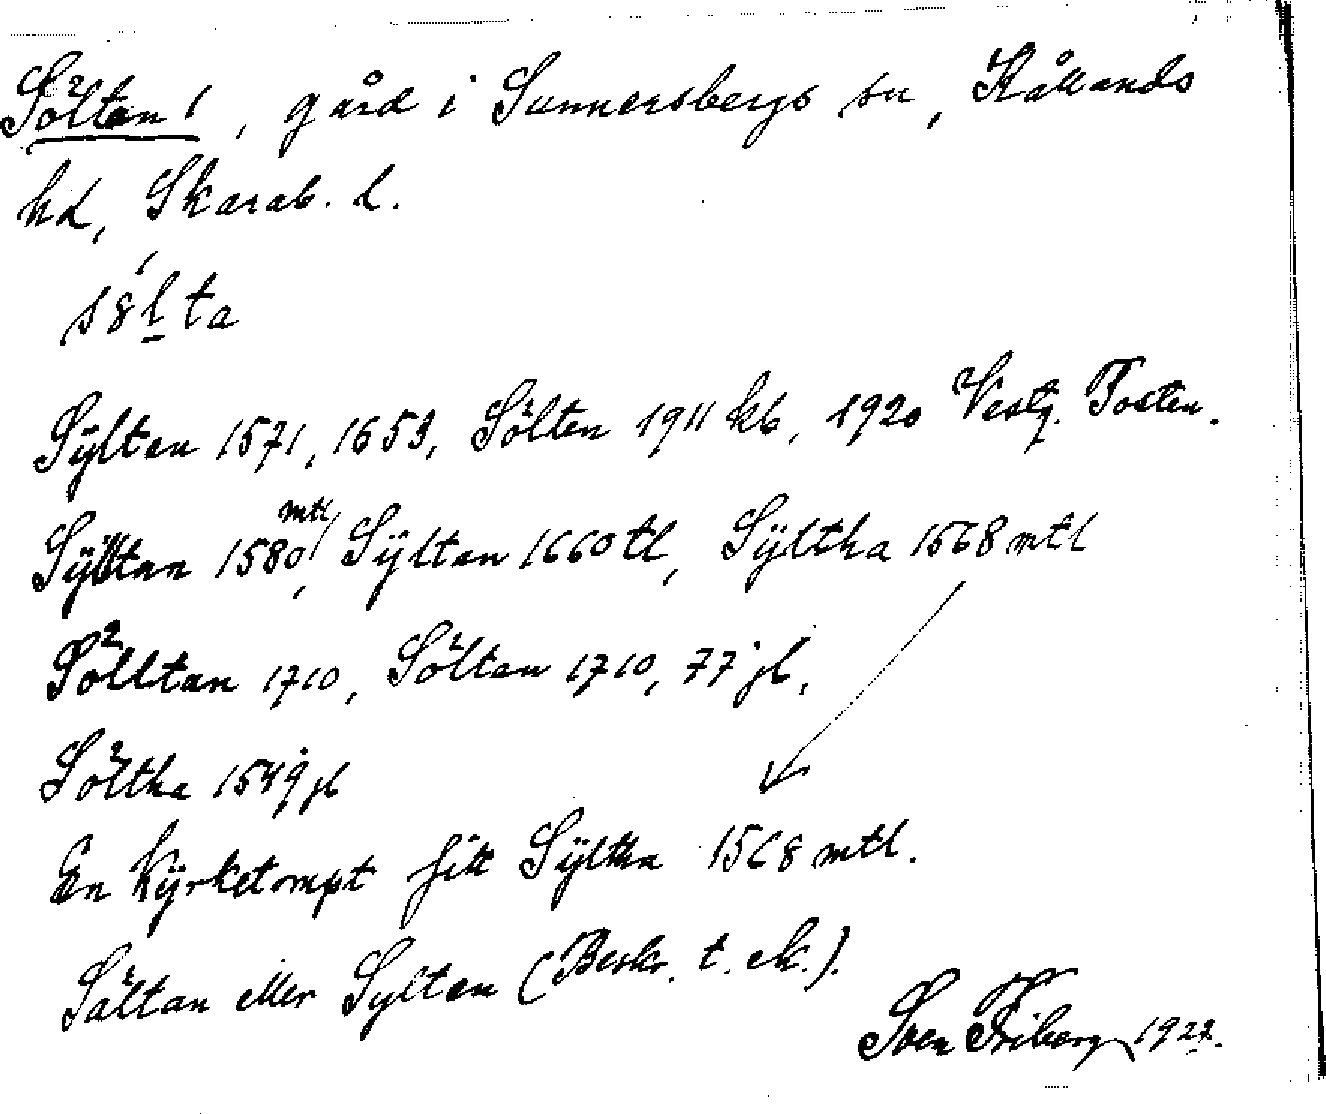 Sölten 1, gård i Sunnersbergs sn, Kållands
hd, Skarab. l.
s8́l̲ta
Sÿlten 1571, 1653, Sölten 1911 kb, 1920 Vestg. Posten.
Sÿltan 1580 mtl, Sÿlten 1660 tl, Sÿltha 1568 mtl
Sölltan 1710, Söltan 1710, 77 jb,
Söltha 1549 jb
En Kÿrketompt Sÿltha 1568 mtl.
Söltan eller Sylten (Beskr. t. ek.).
Sven Friberg 1922.